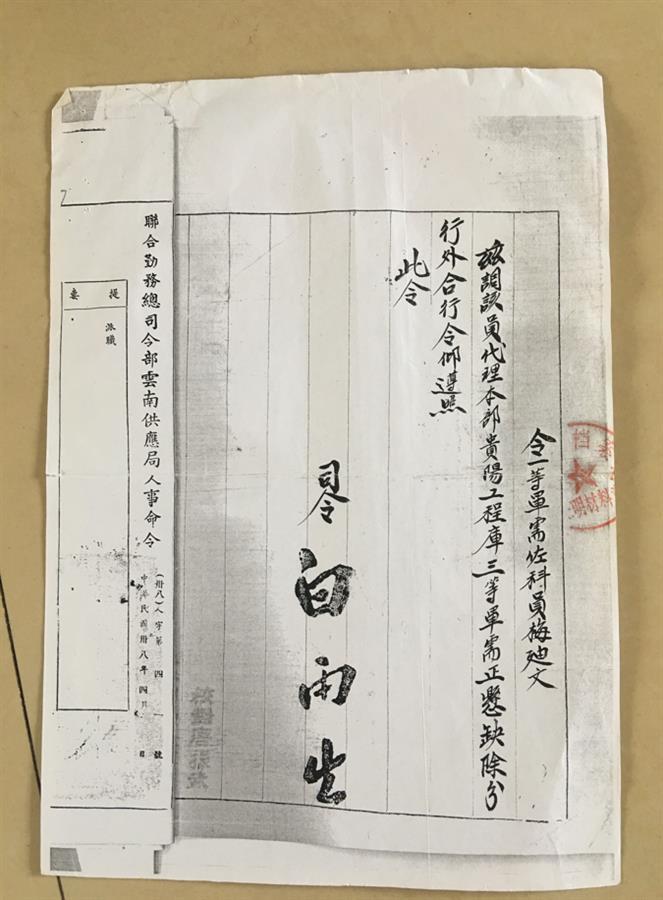 令一等軍需佐科員梅廸文
兹調該員代理本部貴陽工程庫三等軍需正懸缺除分
行外合行令仰遵照
此令
司令 白雨生
聯合勤務總司令部雲南供應局人事命令
(卅八)人字第四一號
中華民國卅八年四月 日
提要
派職